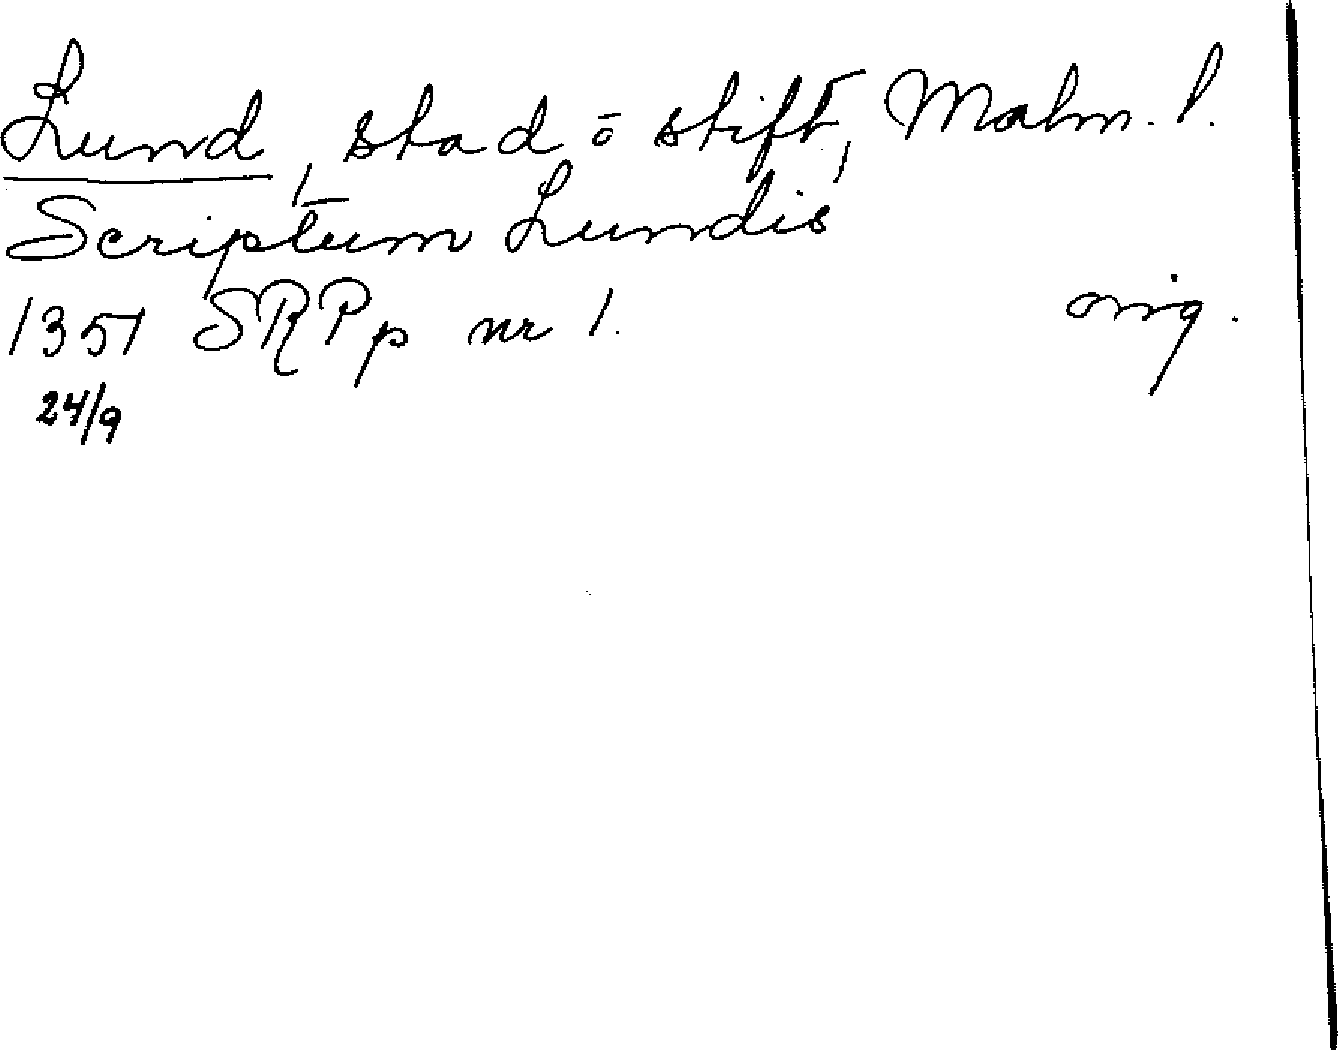 Lund, stad ō stift, Malm. l.
Scriptum Lundis
1351 SRPp nr 1. orig.
24/9